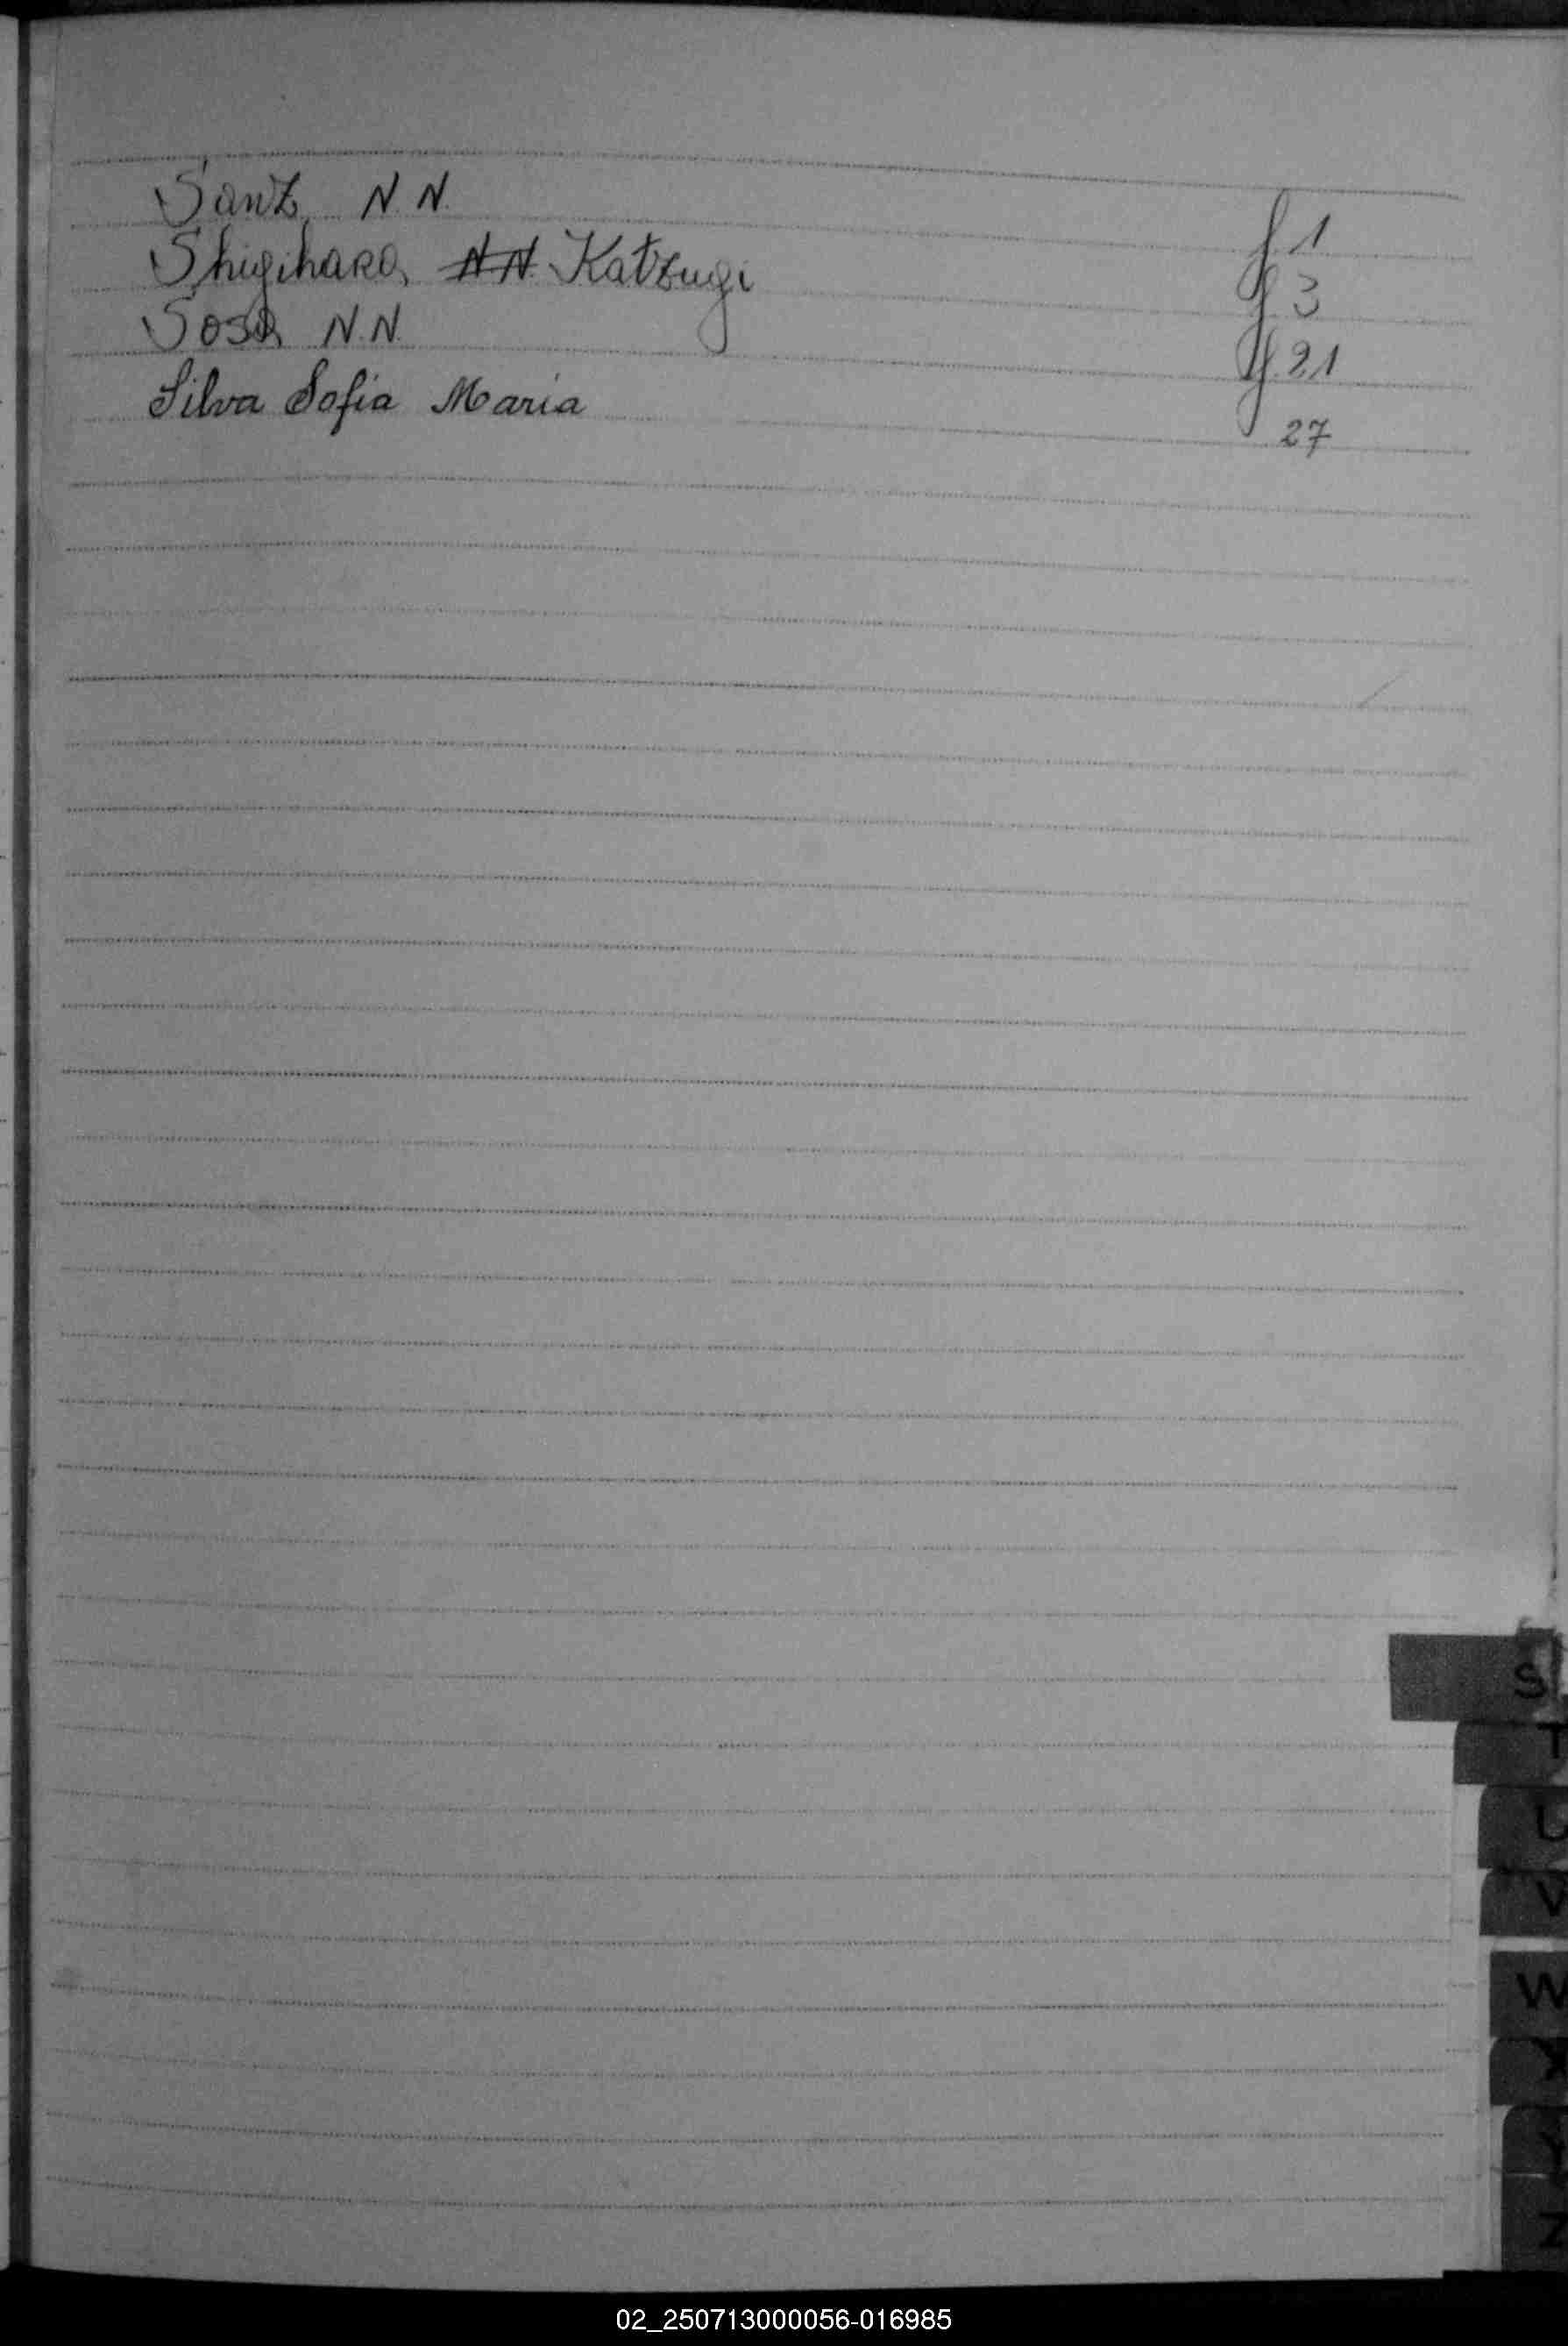 Sanz, N. N. f. 1
Shigihara, N.N. Katzugi f. 3
Sosa, N.N. f. 21
Silva Sofia Maria 27
S
T
U
V
W
X
Y
Z
02_250713000056-016985